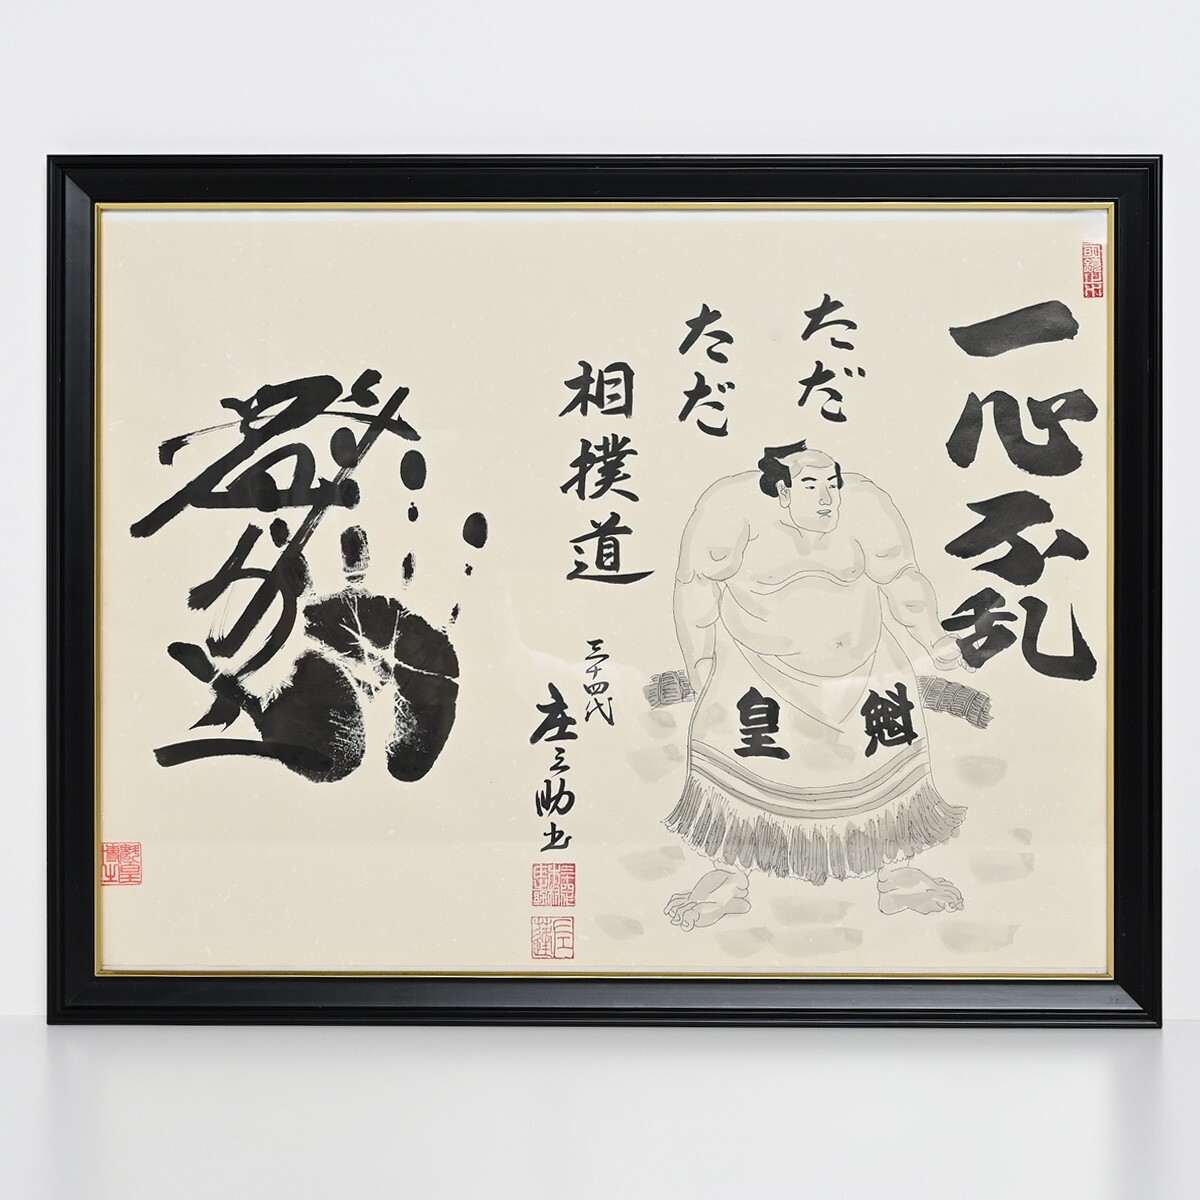 一心不乱
ただ
ただ
魁皇
相撲道
三十四代
庄之助書